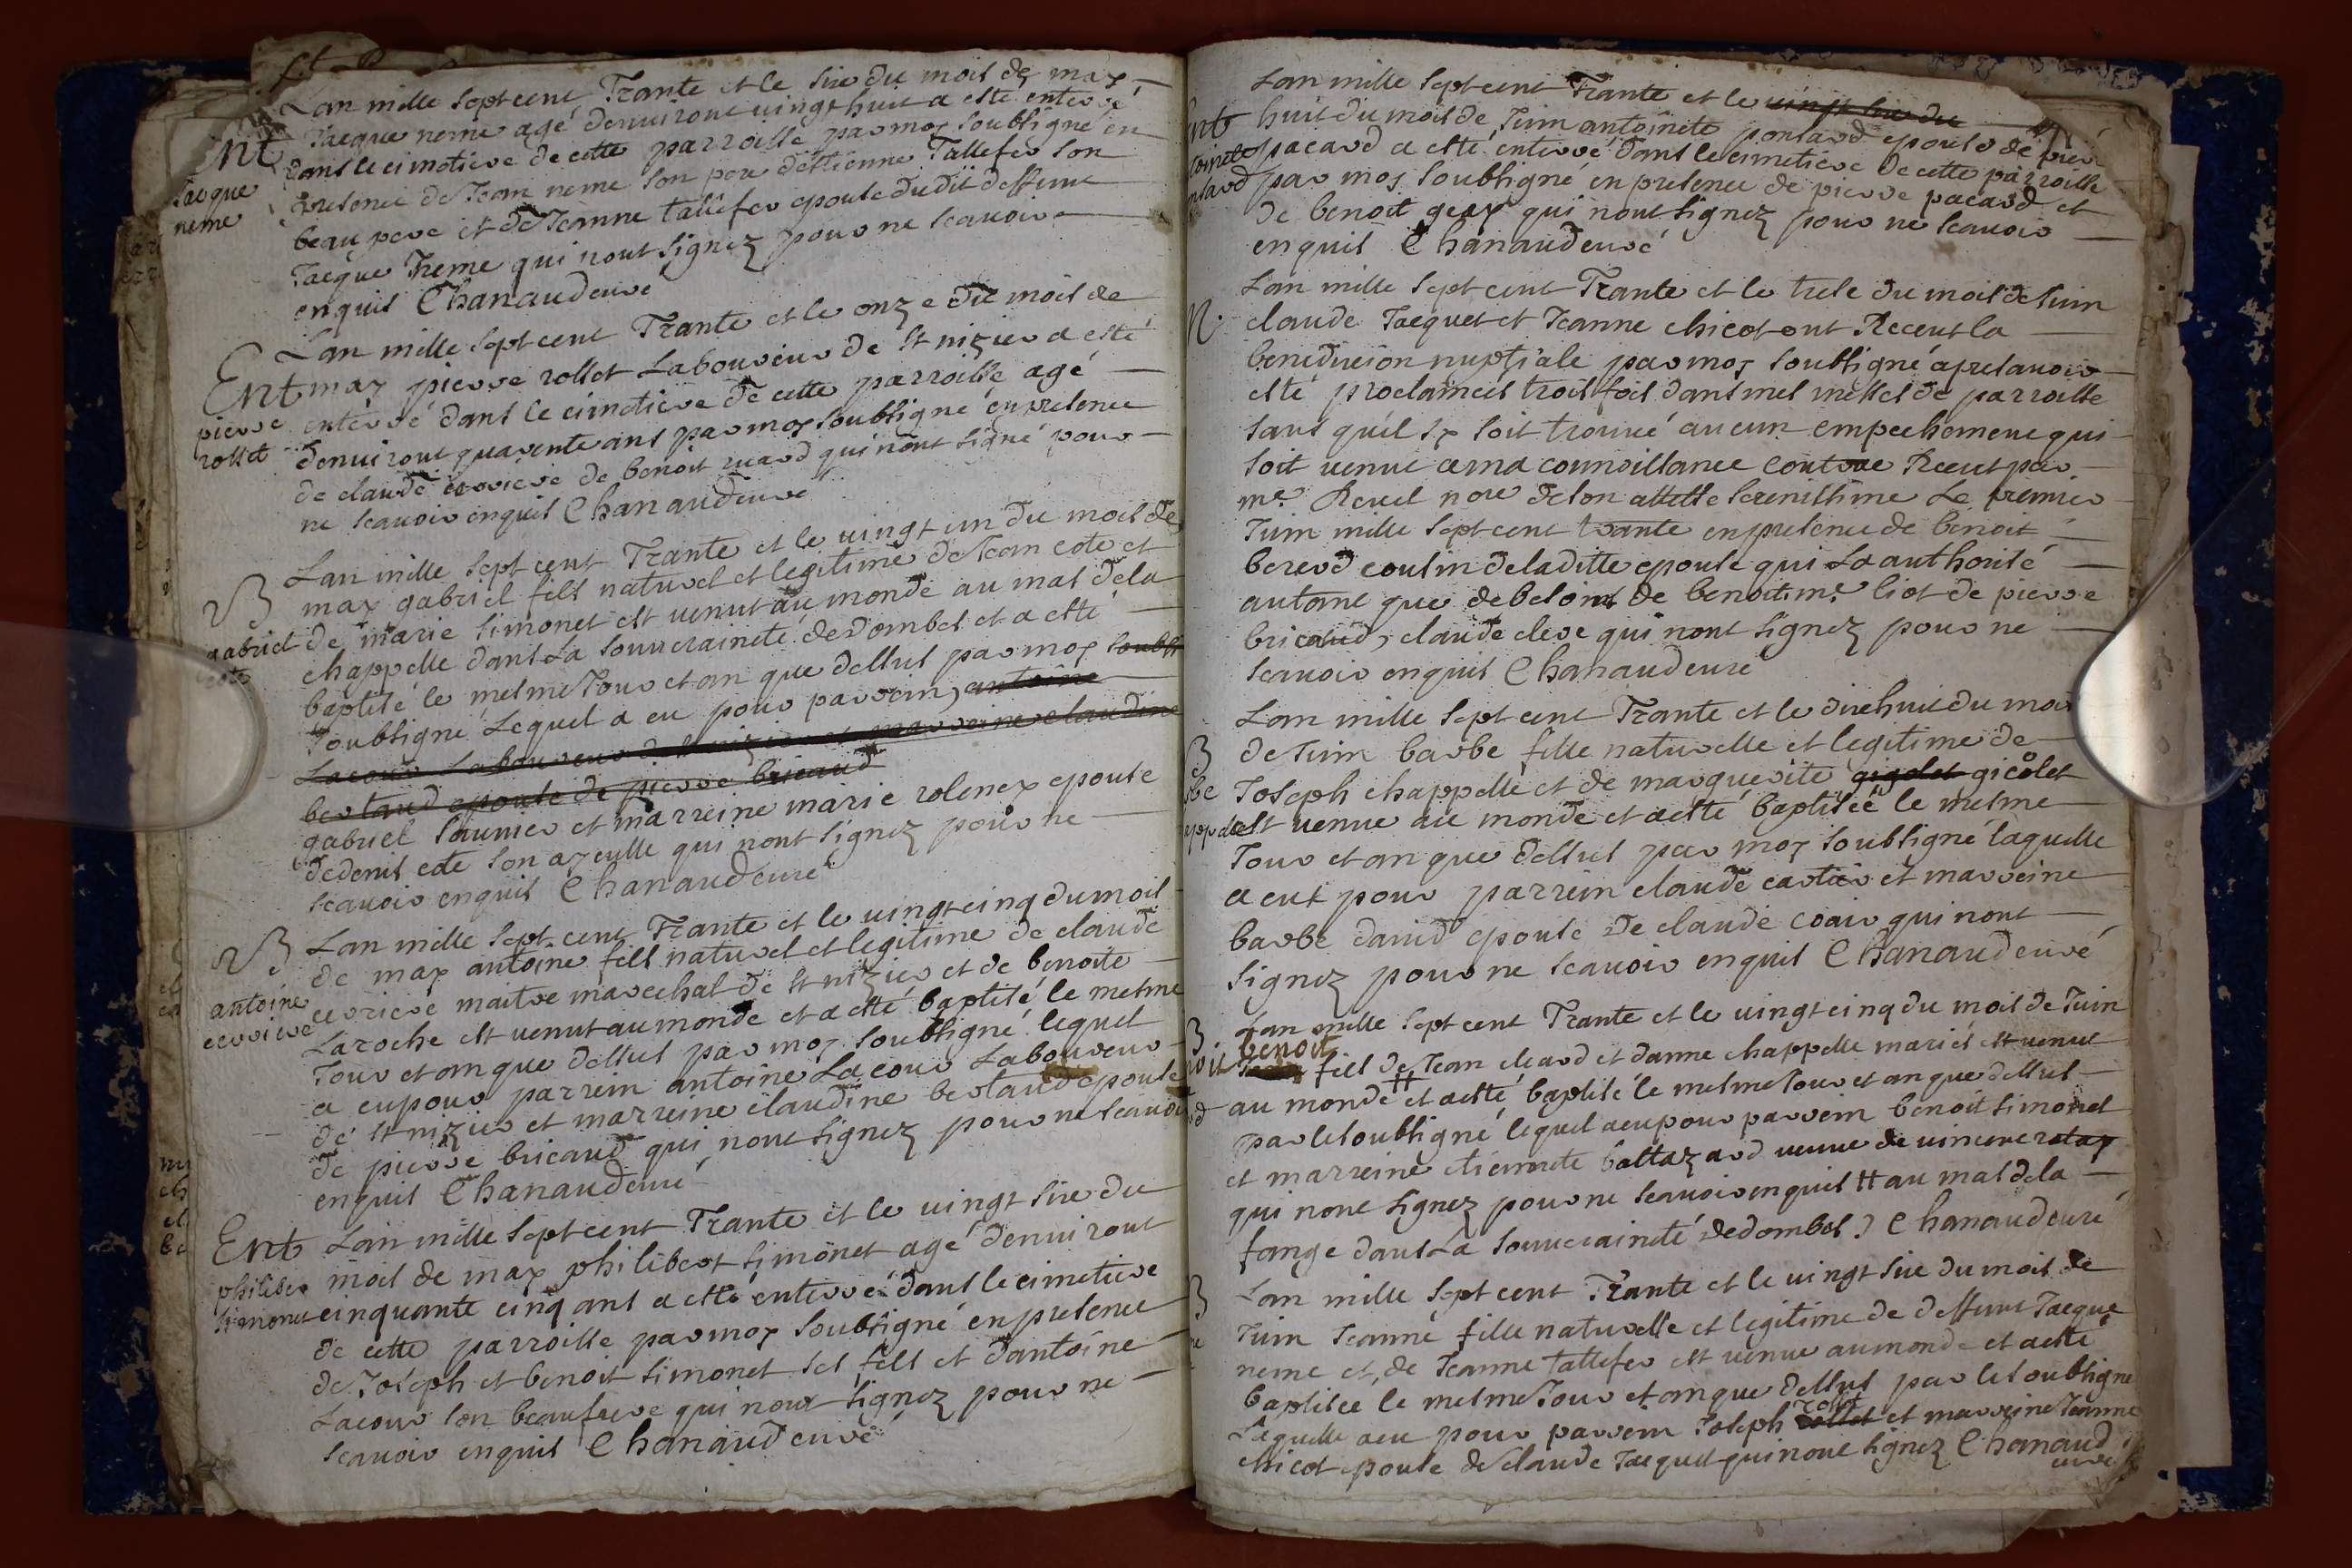 Lan mille sept cent Trante et le sixe du mois de may
Ent Jacque neme agé denviront vingt huit a esté enterré
dans le cimetiere de cette parroisse par moy soubsigné en
Jacque presence de Jean neme son pere destienne Tallefer son
neme beau pere et de Jeanne tallefer epouse dudit deffunt
Jacque neme qui nont signez pour ne scavoir
enquis Chanaud curé
Lan mille sept cent Trante et le onze du mois de
Ent may pierre rollet Laboureur de st nizier a esté
pierre enterré dans le cimetiere de cette parroisse agé
rollet denviront quarente ans par moy soubsigné en presence
de claude cerriere de benoit ruard qui nont signé pour
ne scavoir enquis Chanaud curé
Lan mille sept cent Trante et le vingt un du mois de
B may gabriel fils naturel et legitime de Jean cote et
gabriel de marie simonet est venut au monde au mas de la
cote chappelle dans La souveraineté de dombes et a esté
baptisé le mesme Jour et an que dessus par moy soubs
soubsigné Lequel a eu pour parrein antoine
Lacour Laboureur de st nizier et marreine claudine
bertaud epouse de pierre bricaud
gabriel saunier et marreine marie rolenex epouse
dedenis cote son ayeulle qui nont signez pour ne
scavoir enquis Chanaud curé
B Lan mille sept cent Trante et le vingt cinq du mois
de may antoine fils naturel et legitime de claude
antoine cerriere maitre marechal de st nizier et de benoite
cerriere Laroche est venut au monde et a esté baptisé le mesme
Jour et an que dessus par moy soubsigné lequel
a eu pour parrein antoine Lacour Laboureur
de st nizier et marreine claudine bertaud epouse
de pierre bricaud qui nont signez pour ne scavoir
enquis Chanaud curé
Ent Lan mille sept cent Trante et le vingt sixe du
philiber mois de may philibert simonet agé denviront
simonet cinquante cinq ans a esté enterré dans le cimetiere
de cette parroisse par moy soubsigné en presence
de Joseph et benoit simonet ses fils et dantoine
Lacour son beaufrere qui nont signez pour ne
scavoir enquis Chanaud curé
Lan mille sept cent Trante et le vingt sixe du
ent huit du mois de Juin antoinete ponsard epouse de pierre
toinete pacard a esté enterré dans le cimetiere de cette parroisse
nsard par moy soubsigné en presence de pierre pacard et
de benoit geay qui nont signez pour ne scavoir
enquis Chanaud curé
Lan mille sept cent Trante et le trese du mois de Juin
M. claude Jacquet et Jeanne chicot ont Receut la
benediction nuptiale par moy soubsigné apres avoir
esté proclamés trois fois dans mes messes de parroisse
sans quil sy soit trouvé aucun empechement qui
soit venut a ma connoissance contrat Receut par
me. Revel nore de son altesse serenissime Le premier
Juin mille sept cent trante en presence de benoit
bererd cousin de laditte epouse qui La authorisé
autant que de besoint de benoit me. liot de pierre
bricaud, claude cleve qui nont signez pour ne
scavoir enquis Chanaud curé
Lan mille sept cent Trante et le dixehuit du mois
B de Juin barbe fille naturelle et legitime de
rbe Joseph chappelle et de marguerite gigolet gicolet
appelle est venue au monde et a esté baptisée le mesme
Jour et an que dessus par moy soubsigné laquelle
a eut pour parrein claude cartier et marreine
barbe david epouse de claude coair qui nont
signez pour ne scavoir enquis Chanaud curé
Lan mille sept cent Trante et le vingt cinq du mois de Juin
B. benoit
noit fils de Jean cleard et danne chappelle mariés est venut
rd au monde # et a esté baptisé le mesme Jour et an que dessus
par le soubsigné lequel a eu pour parrein benoit simonet
et marreine etiennete baltazard veuve de vincent rolay
qui nont signez pour ne scavoir enquis # au mas de la
fange dans La souveraineté de dombes) Chanaud curé
B Lan mille sept cent Trante et le vingt sixe du mois de
Juin Jeanne fille naturelle et legitime de deffunt Jacque
neme et de Jeanne tallefer est venue au monde et a esté
baptisée le mesme Jour et an que dessus par le soubsigné
Laquelle a eu pour parrein Joseph rollet et marreine Jeanne
chicot epouse de claude Jacquet qui nont signez Chanaud
curé